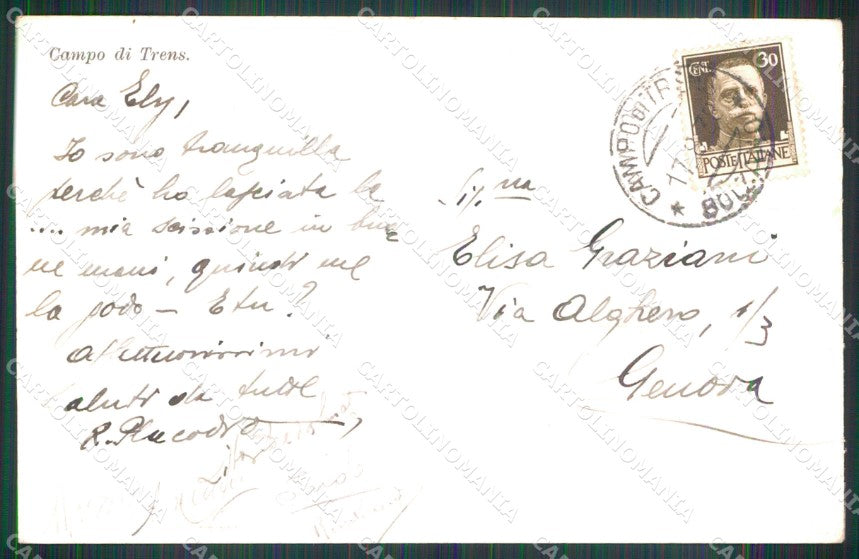 Campo di Trens.
Cara Ely,
Io sono tranquilla
perchè ho lasciata la
.... mia scissione in buo
ne mani, quindi me
la godo – E tu?
Affettuosissimi
saluti da tutte
Sig.na
Elisa Graziani
Via Alghero, 1/3
Genova
CENT. 30
POSTE ITALIANE
CAMPO DI TR
CARTOLINOMANIA